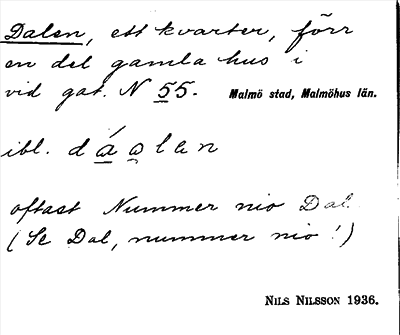 Dalen, ett kvarter, förr
en del gamla hus i
vid gat. N 55. Malmö stad, Malmöhus län.
ibl. dáalen
oftast Nummer nio Dal.
(Se Dal, nummer nio!)
NILS NILSSON 1936.